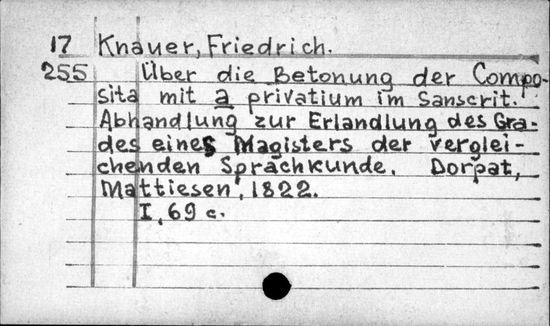 17 Knauer, Friedrich.
255 Über die Betonung der Compo-
sita mit a privatium im Sanscrit.
Abhandlung zur Erlandlung des Gra-
des eines Magisters der verglei-
chenden Sprachkunde. Dorpat,
Mattiesen, 1822.
I, 69 c.